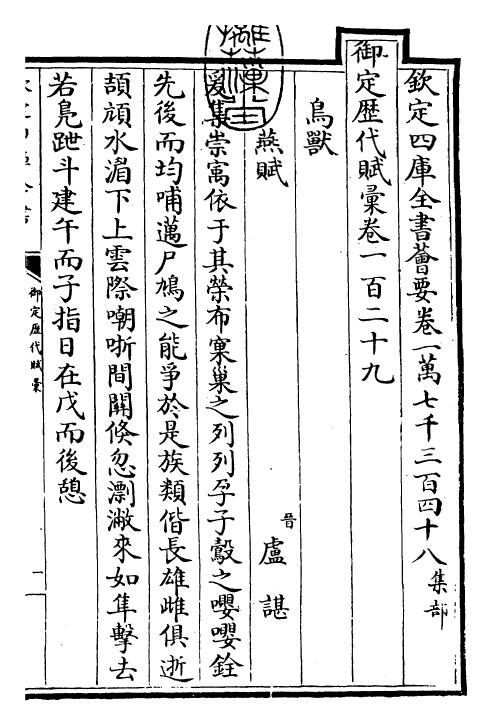 欽定四庫全書薈要卷一萬七千三百四十八 集部
御定歴代賦彚卷一百二十九
鳥獸
燕賦
晉 盧諶
爰集崇寓依于其榮布窠巢之列列孕子鷇之嚶嚶銓
先後而均哺邁尸鳩之能爭於是族類偕長雄雌俱逝
頡頏水湄下上雲際嘲哳間關倏忽漂潎來如隼擊去
若鳧跇斗建午而子指日在戊而後憩
御定歴代賦彚
一